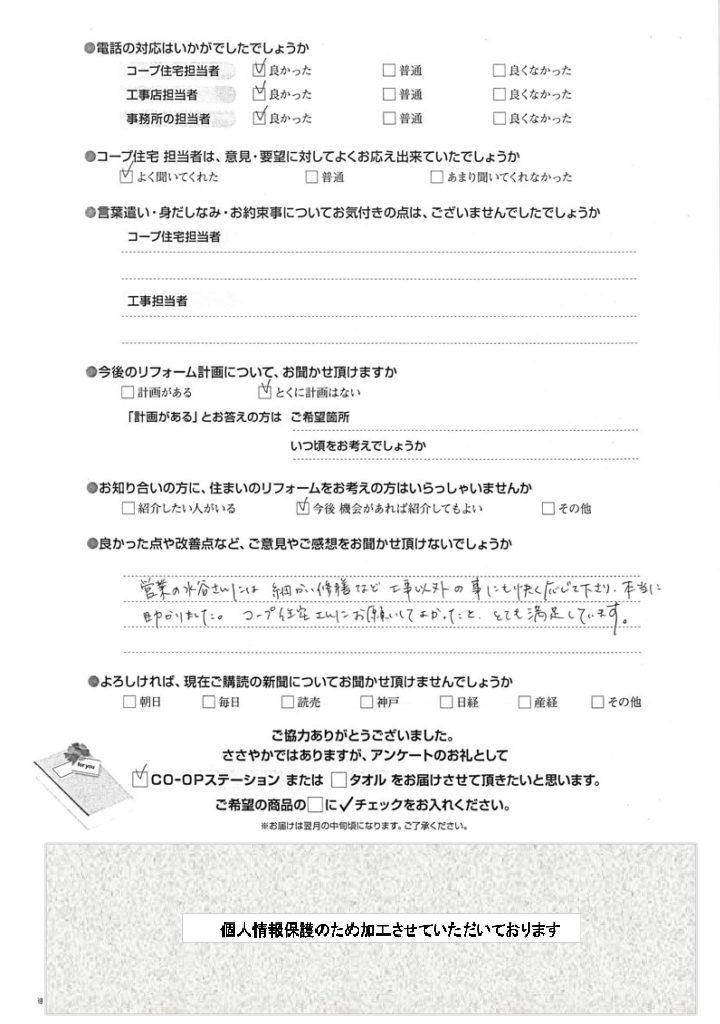 ●電話の対応はいかがでしたでしょうか
コープ住宅担当者 ☑良かった □普通 □良くなかった
工事店担当者 ☑良かった □普通 □良くなかった
事務所の担当者 ☑良かった □普通 □良くなかった
●コープ住宅 担当者は、意見・要望に対してよくお応え出来ていたでしょうか
☑よく聞いてくれた □普通 □あまり聞いてくれなかった
●言葉遣い・身だしなみ・お約束事についてお気付きの点は、ございませんでしたでしょうか
コープ住宅担当者
工事担当者
●今後のリフォーム計画について、お聞かせ頂けますか
□計画がある ☑とくに計画はない
「計画がある」とお答えの方は ご希望箇所
いつ頃をお考えでしょうか
●お知り合いの方に、住まいのリフォームをお考えの方はいらっしゃいませんか
□紹介したい人がいる ☑今後 機会があれば紹介してもよい □その他
●良かった点や改善点など、ご意見やご感想をお聞かせ頂けないでしょうか
営業の水谷さんには 細かい修繕など 工事以外の事にも快く応じて下さり、本当に
助かりました。 コープ住宅さんにお願いしてよかったと、とても満足しています。
●よろしければ、現在ご購読の新聞についてお聞かせ頂けませんでしょうか
□朝日 □毎日 □読売 □神戸 □日経 □産経 □その他
ご協力ありがとうございました。
ささやかではありますが、アンケートのお礼として
for you
☑CO-OPステーション または □タオル をお届けさせて頂きたいと思います。
ご希望の商品の□に✓チェックをお入れください。
※お届けは翌月の中旬頃になります。ご了承ください。
個人情報保護のため加工させていただいております